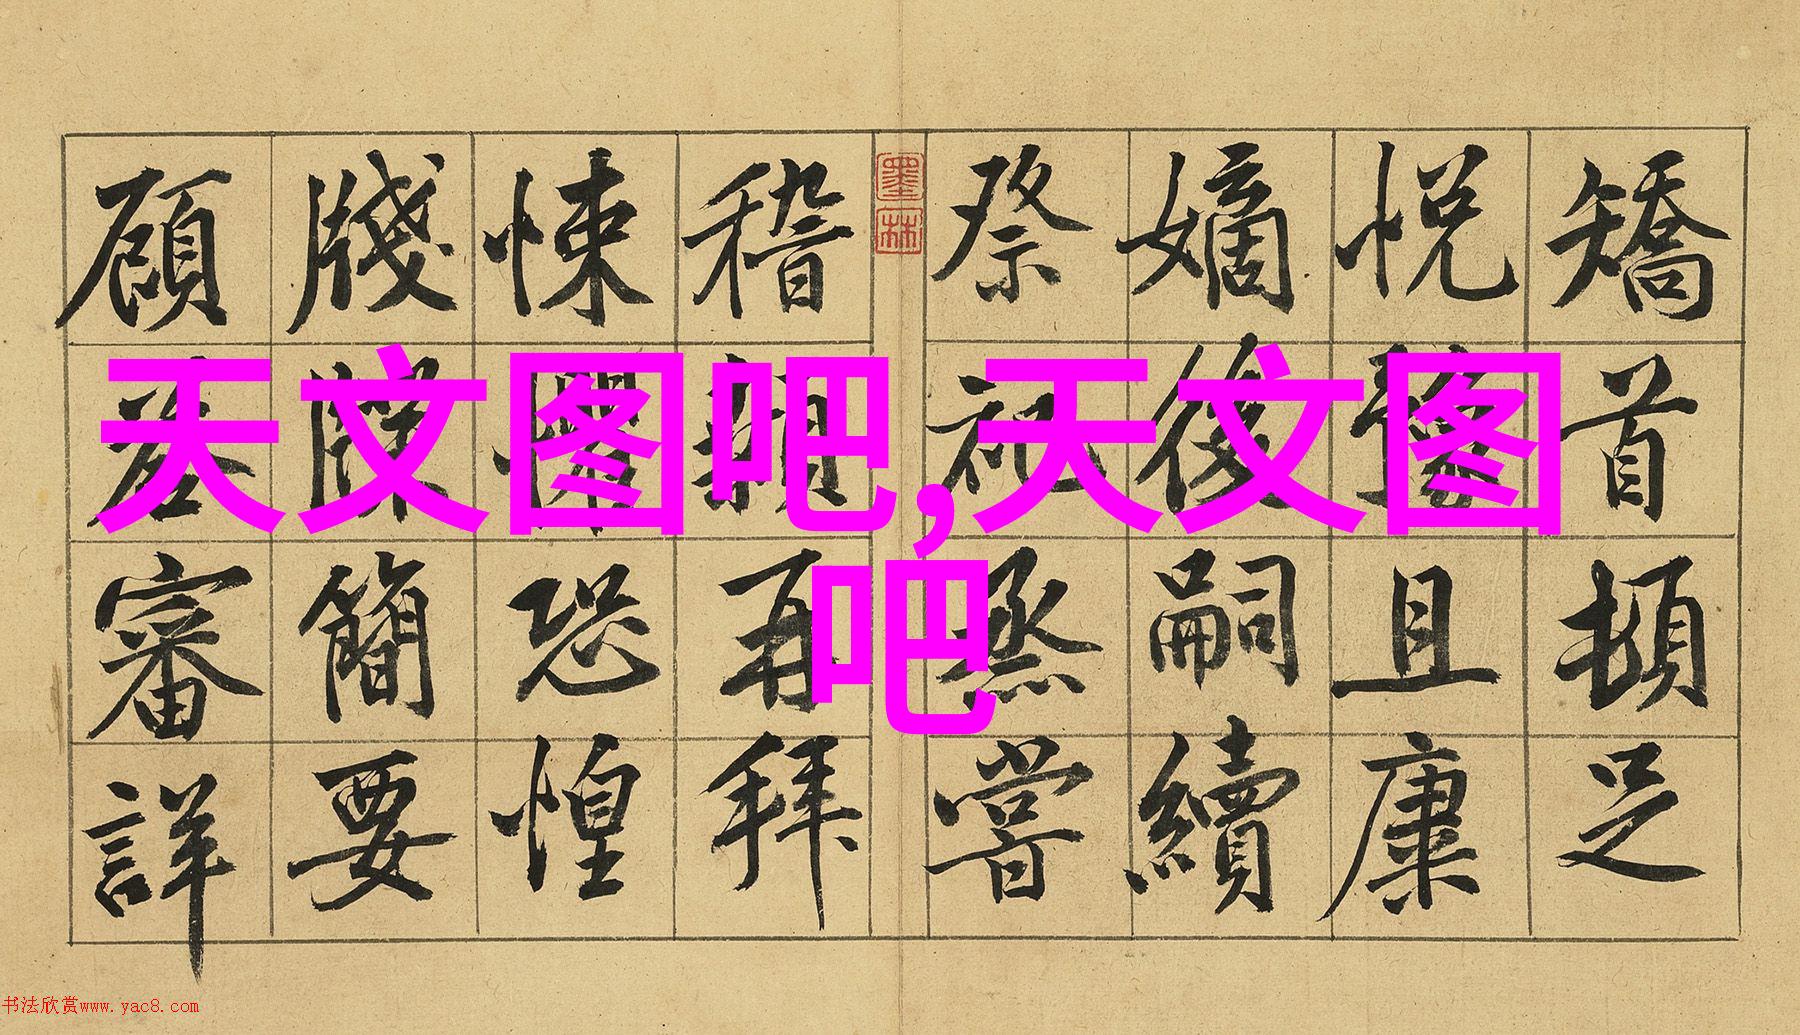 矯首頓足
悅豫且康
嫡後嗣續
祭祀烝嘗
墨林
稽顙再拜
悚懼恐惶
牋牒簡要
顧答審詳
天文图吧,天文图
吧
书法欣赏www.yac8.com